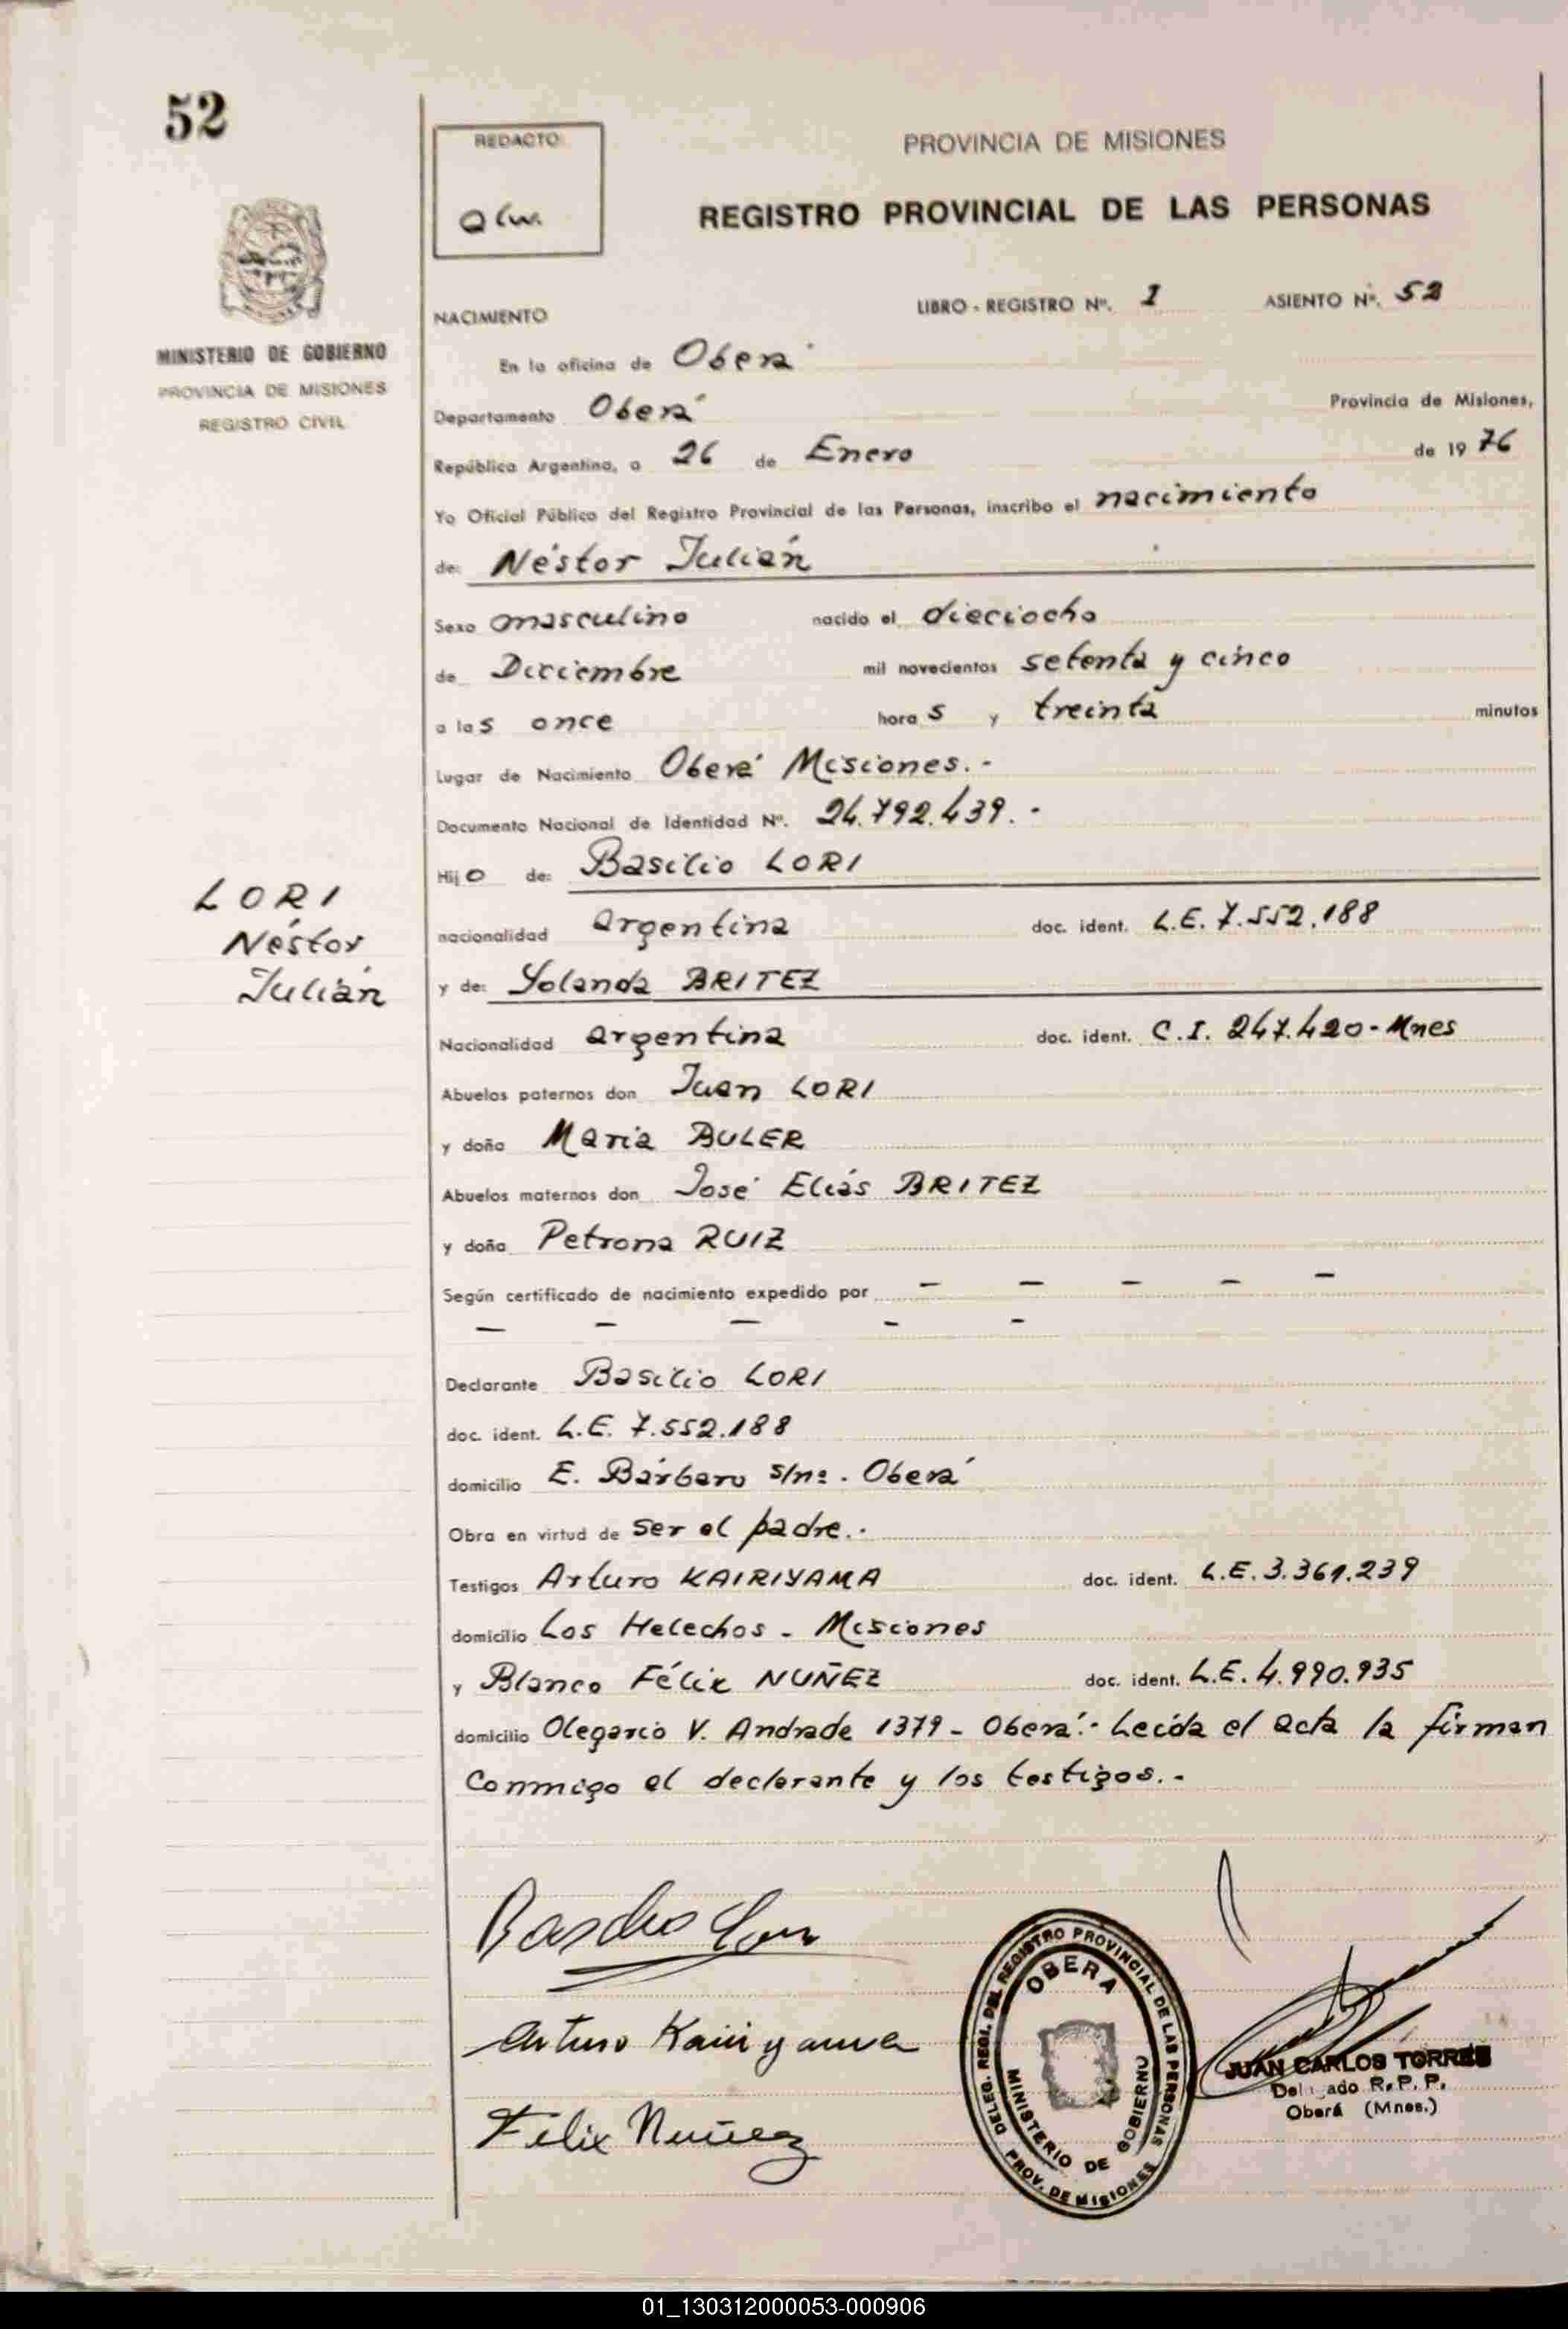 52
REDACTO
PROVINCIA DE MISIONES
REGISTRO PROVINCIAL DE LAS PERSONAS
MINISTERIO DE GOBIERNO
PROVINCIA DE MISIONES
REGISTRO CIVIL
NACIMIENTO LIBRO - REGISTRO Nº. 1 ASIENTO Nº. 52
En la oficina de Oberá
Departamento Oberá Provincia de Misiones,
República Argentina, a 26 de Enero de 1976
Yo Oficial Público del Registro Provincial de las Personas, inscribo el nacimiento
de: Néstor Julián
Sexo masculino nacido el dieciocho
de Diciembre mil novecientos setenta y cinco
a las once horas y treinta minutos
Lugar de Nacimiento Oberá Misiones.-
Documento Nacional de Identidad Nº. 24.792.439.-
Hijo de: Basilio LORI
LORI
Néstor
Julián
nacionalidad argentina doc. ident. L.E. 7.552.188
y de: Yolanda BRITEZ
Nacionalidad argentina doc. ident. C.I. 247.420-Mnes
Abuelos paternos don Juan LORI
y doña Maria BULER
Abuelos maternos don José Eliás BRITEZ
y doña Petrona RUIZ
Según certificado de nacimiento expedido por - - - - -
- - - - -
Declarante Basilio LORI
doc. ident. L.E. 7.552.188
domicilio E. Bárbaro s/nº. Oberá
Obra en virtud de ser el padre.-
Testigos Arturo KAIRIYAMA doc. ident. L.E. 3.361.239
domicilio Los Helechos - Misiones
y Blanco Félix NUÑEZ doc. ident. L.E. 4.990.935
domicilio Olegario V. Andrade 1379 - Oberá.- Leída el acta la firman
conmigo el declarante y los testigos.-
Basilio Lori
Arturo Kairiyama
Felix Nuñez
DELEG. REGI. DEL REGISTRO PROVINCIAL DE LAS PERSONAS
OBERA
MINISTERIO DE GOBIERNO
PROV. DE MISIONES
JUAN CARLOS TORRES
R.P.P.
Oberá (Mnes.)
01_130312000053-000906